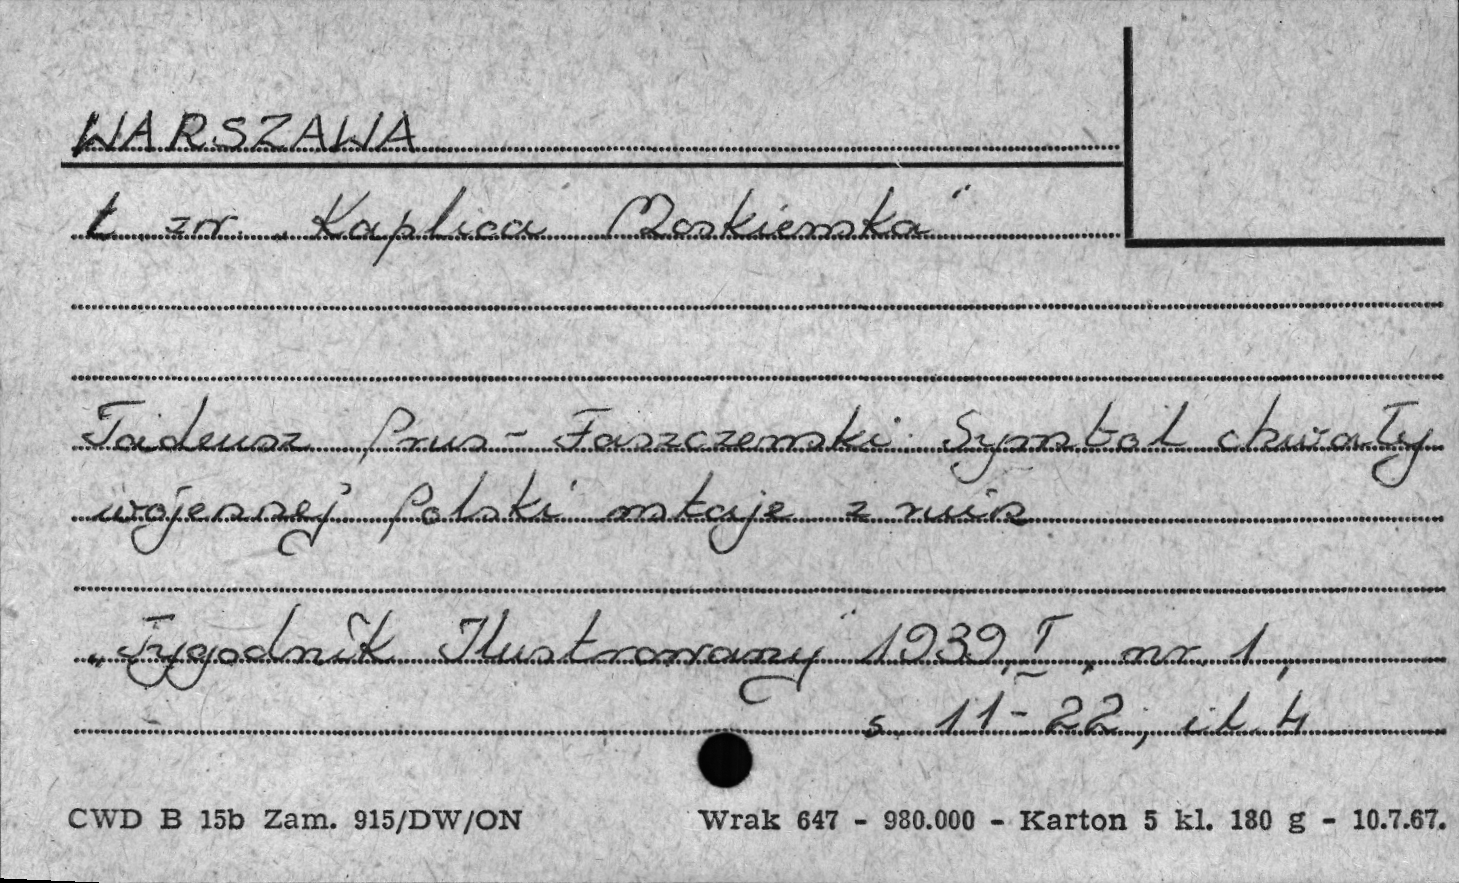 WARSZAWA
t. zw. „Kaplica Moskiewska”
Tadeusz Prus-Faszczewski: Symbol chwały
wojennej Polski wstaje z ruin
„Tygodnik Ilustrowany” 1939, I, nr. 1,
s. 11-22, il. 4
CWD B 15b Zam. 915/DW/ON Wrak 647 - 980.000 - Karton 5 kl. 180 g - 10.7.67.